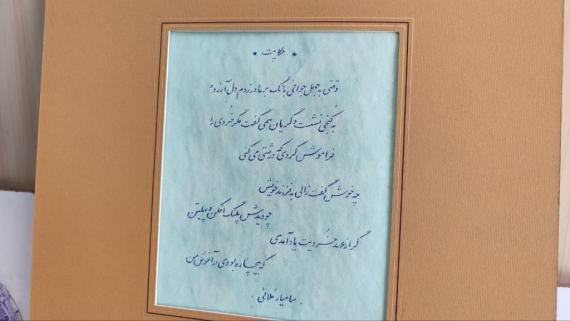 حکایت
وقتی به جهل جوانی بانگ بر مادر زدم دل آزرده
به کنجی نشست و گریان همی گفت مگر خُردی را
فراموش کردی که درشتی می کنی
چه خوش گفت زالی به فرزند خویش
چو دیدش پلنگ افکن و پیلتن
گر از عهد خُردیت یاد آمدی
که بیچاره بودی در آغوش من
سامیار غلافی